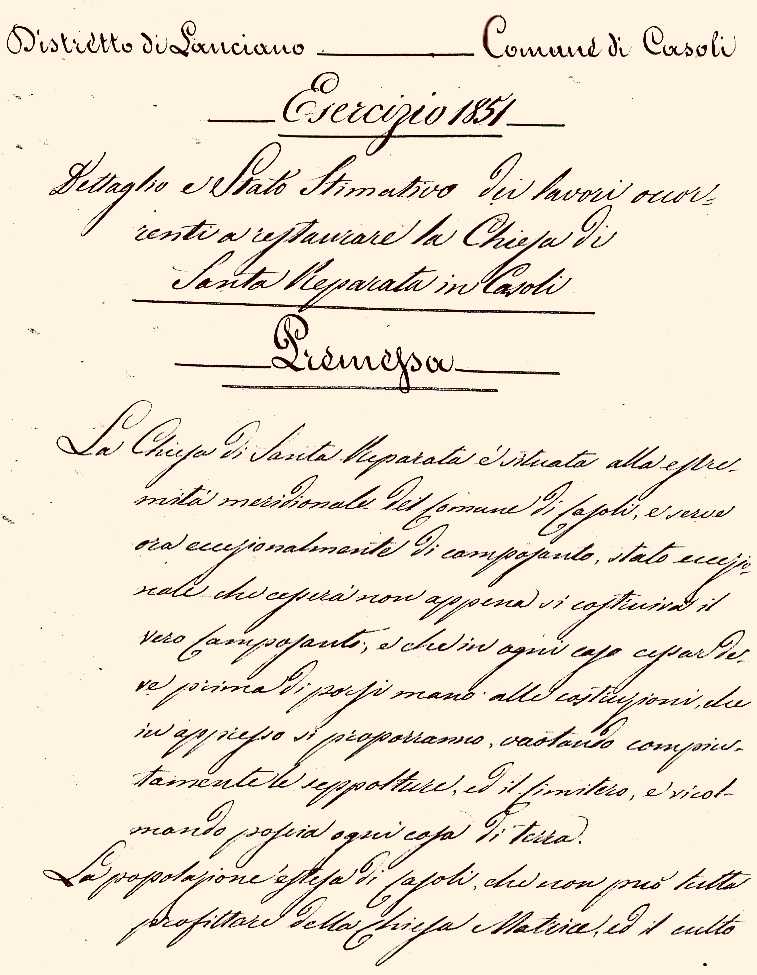 Distretto di Lanciano Comune di Casoli
Esercizio 1851
Dettaglio e Stato Stimativo dei lavori occor=
renti a restaurare la Chiesa di
Santa Reparata in Casoli
Premessa
La Chiesa di Santa Reparata è situata alla estre-
mità meridionale del Comune di Casoli, e serve
ora eccezionalmente di camposanto, stato eccezio-
nale che cesserà non appena si costruirà il
vero Camposanto, e che in ogni caso cessar de-
ve prima di porsi mano alle costruzioni, che
in appresso si proporranno, vuotando compiu-
tamente le seppolture, ed il Cimitero, e ricol-
mando poscia ogni cosa di terra.
La popolazione estesa di Casoli, che non può tutta
profittare della Chiesa Matrice, ed il culto